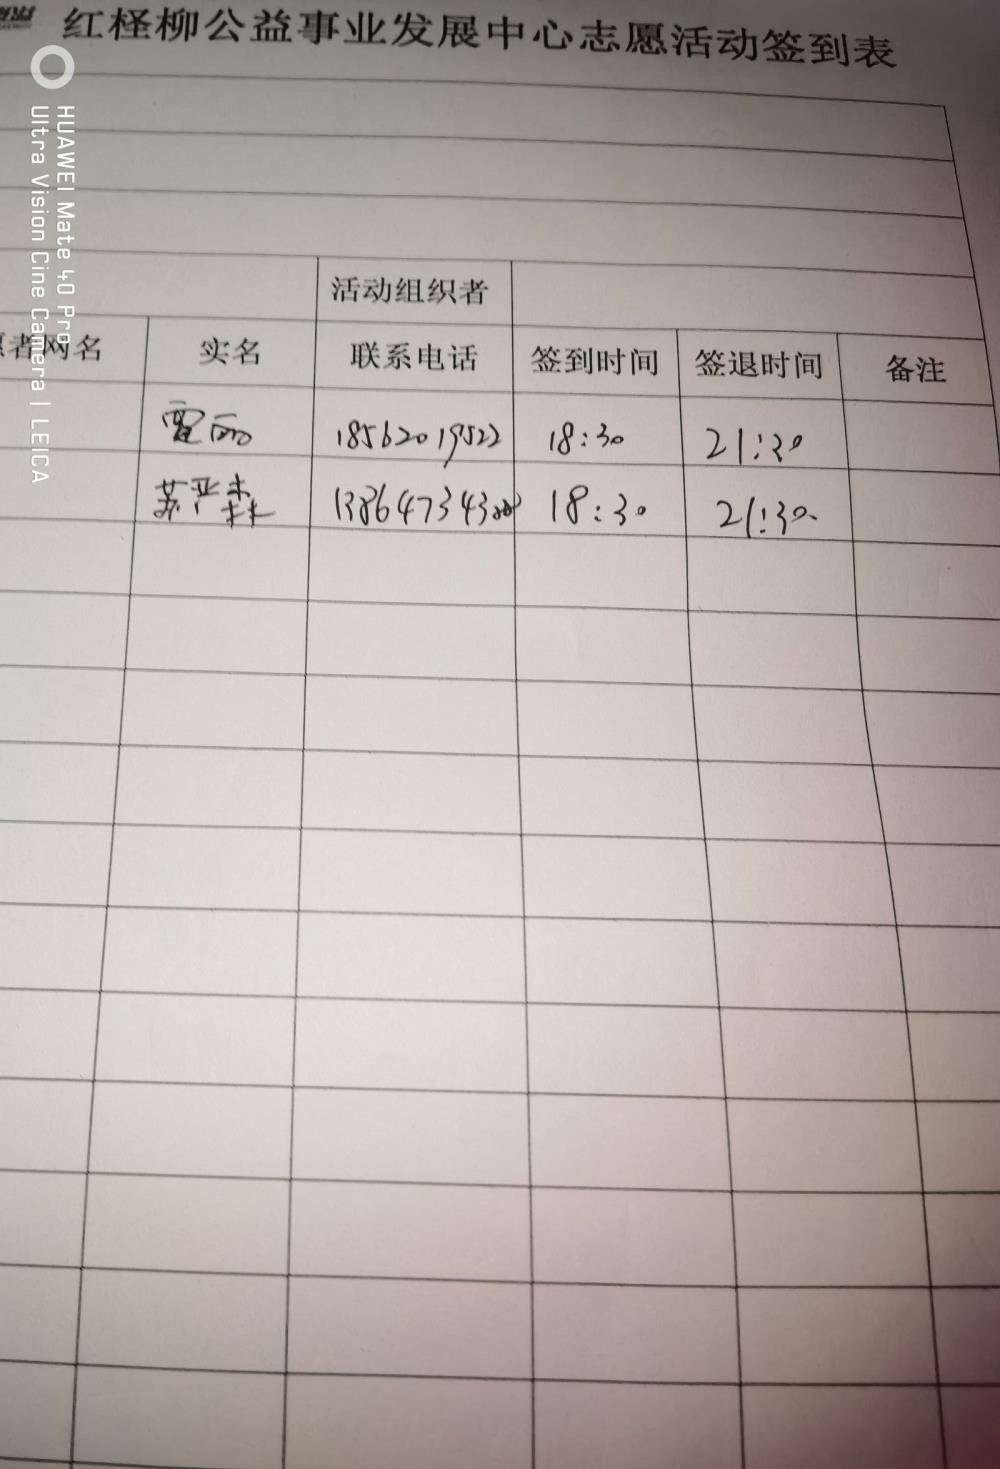 红柽柳公益事业发展中心志愿活动签到表
HUAWEI Mate 40 Pro
Ultra Vision Cine Camera | LEICA
活动组织者
者网名 实名 联系电话 签到时间 签退时间 备注
18562019522 18:30 21:30
138647343 18:30 21:30